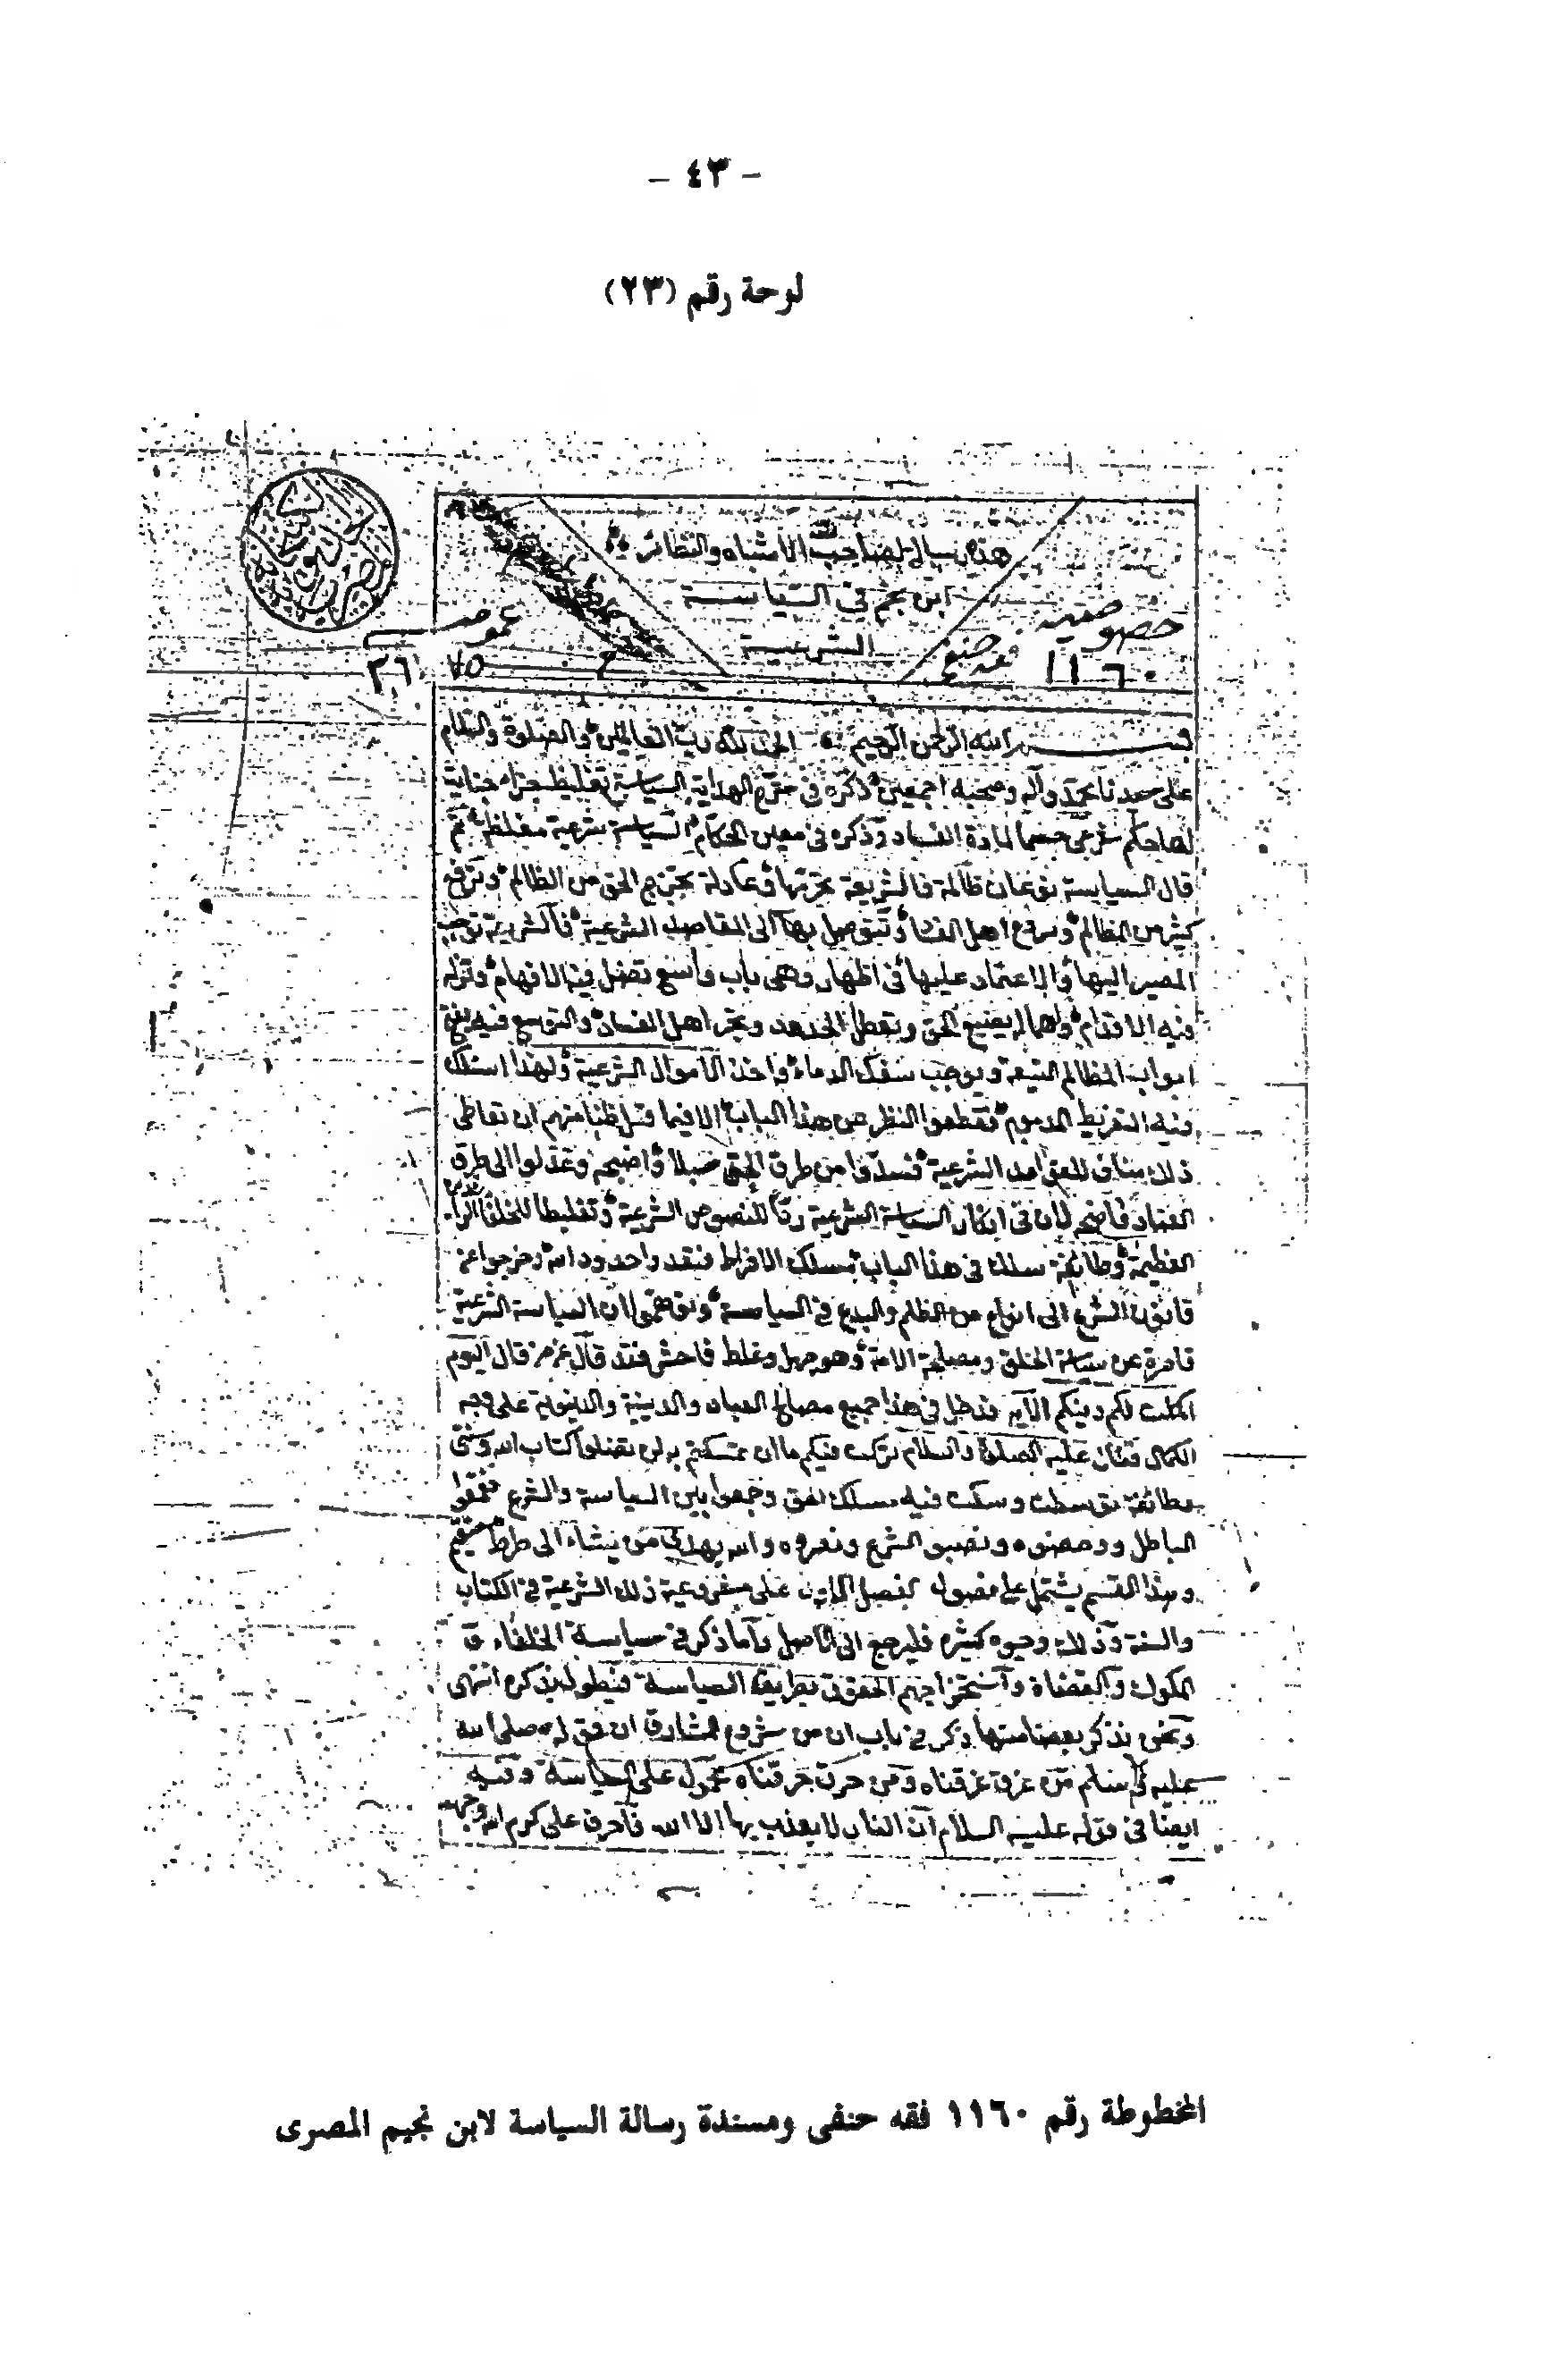 - ٤٣ -
لوحة رقم (٢٣)
هذه رسالة لصاحب الاشباه والنظائر
ابن نجيم في السياسة
الشرعية
خصوصية
١١٦٠
فقه حنفي
عمومية
٣٦ ٧٥
بسم الله الرحمن الرحيم الحمد لله رب العالمين والصلوة والسلام
على سيدنا محمد وآله وصحبه اجمعين ذكره في شرح الهداية السياسة تغليظ جزاء جناية
لها حكم شرعي حسما لمادة الفساد وذكره في معين الحكام السياسة شرعية مغلظة ثم
قال السياسة نوعان ظالمة فالشريعة تحرمها وعادلة تخرج الحق من الظالم وترفع
كثير من المظالم وتردع اهل الفساد وتتوصل بها الى المقاصد الشرعية فالشريعة توجب
المصير اليها والاعتماد عليها في اظهار وهي باب واسع تضل فيه الافهام وتزل
فيه الاقدام واهماله يضيع الحق ويعطل الحدود ويجر اهل الفساد والتوسع فيه يفتح
ابواب المظالم الشنيعة ويوجب سفك الدماء واخذ الاموال الشرعية ولهذا اسلك
فيه التفريط المذموم فقطعوا النظر عن هذا الباب الا فيما قل ظنا منهم ان تعاطى
ذلك مناف للقواعد الشرعية فسدوا من طرق الحق سبلا واضحة وعدلوا الى طرق
العناد فاضحة لان في انكار السياسة الشرعية ردا للنصوص الشرعية وتغليطا للخلفاء الراشدين
العظيمة وطائفة سلك في هذا الباب مسلك الافراط فتعدوا حدود الله وخرجوا عن
قانون الشرع الى انواع من الظلم والبدع في السياسة وتوهموا ان السياسة الشرعية
قاصرة عن سياسة الخلق ومصلحة الامة وهو جهل وغلط فاحش فقد قال عز من قال اليوم
اكملت لكم دينكم الآية فدخل في هذا جميع مصالح العباد والدينية والدنيوية على وجه
الكمال وقال عليه الصلوة والسلام تركت فيكم ما ان تمسكتم به لن تضلوا كتاب الله وسنتي
وطائفة توسطت وسكت فيه مسلك الحق وجمعوا بين السياسة والشرع فقمعوا
الباطل ودحضوه ونصبوا الشرع ونصروه والله يهدي من يشاء الى صراط مستقيم
وهذا القسم يشتمل على فصول الفصل الاول على مشروعية ذلك الشرعية في الكتاب
والسنة وذلك وجوه كثيرة فليرجع الى الاصل واما ذكر في سياسة الخلفاء و
الملوك والقضاة واستخراجهم الحقوق بطريقة السياسة فيطول بذكره انتهى
ونحن نذكر بعضا منها ذكر في باب ان من شروع المشارق ان قوله صلى الله
عليه وسلم من غرق غرقناه ومن حرق حرقناه محمول على السياسة وفيه
ايضا في قوله عليه السلام ان النار لا يعذب بها الا الله فاحرق على كرم الله وجهه
المخطوطة رقم ١١٦٠ فقه حنفى ومسندة رسالة السياسة لابن نجيم المصرى